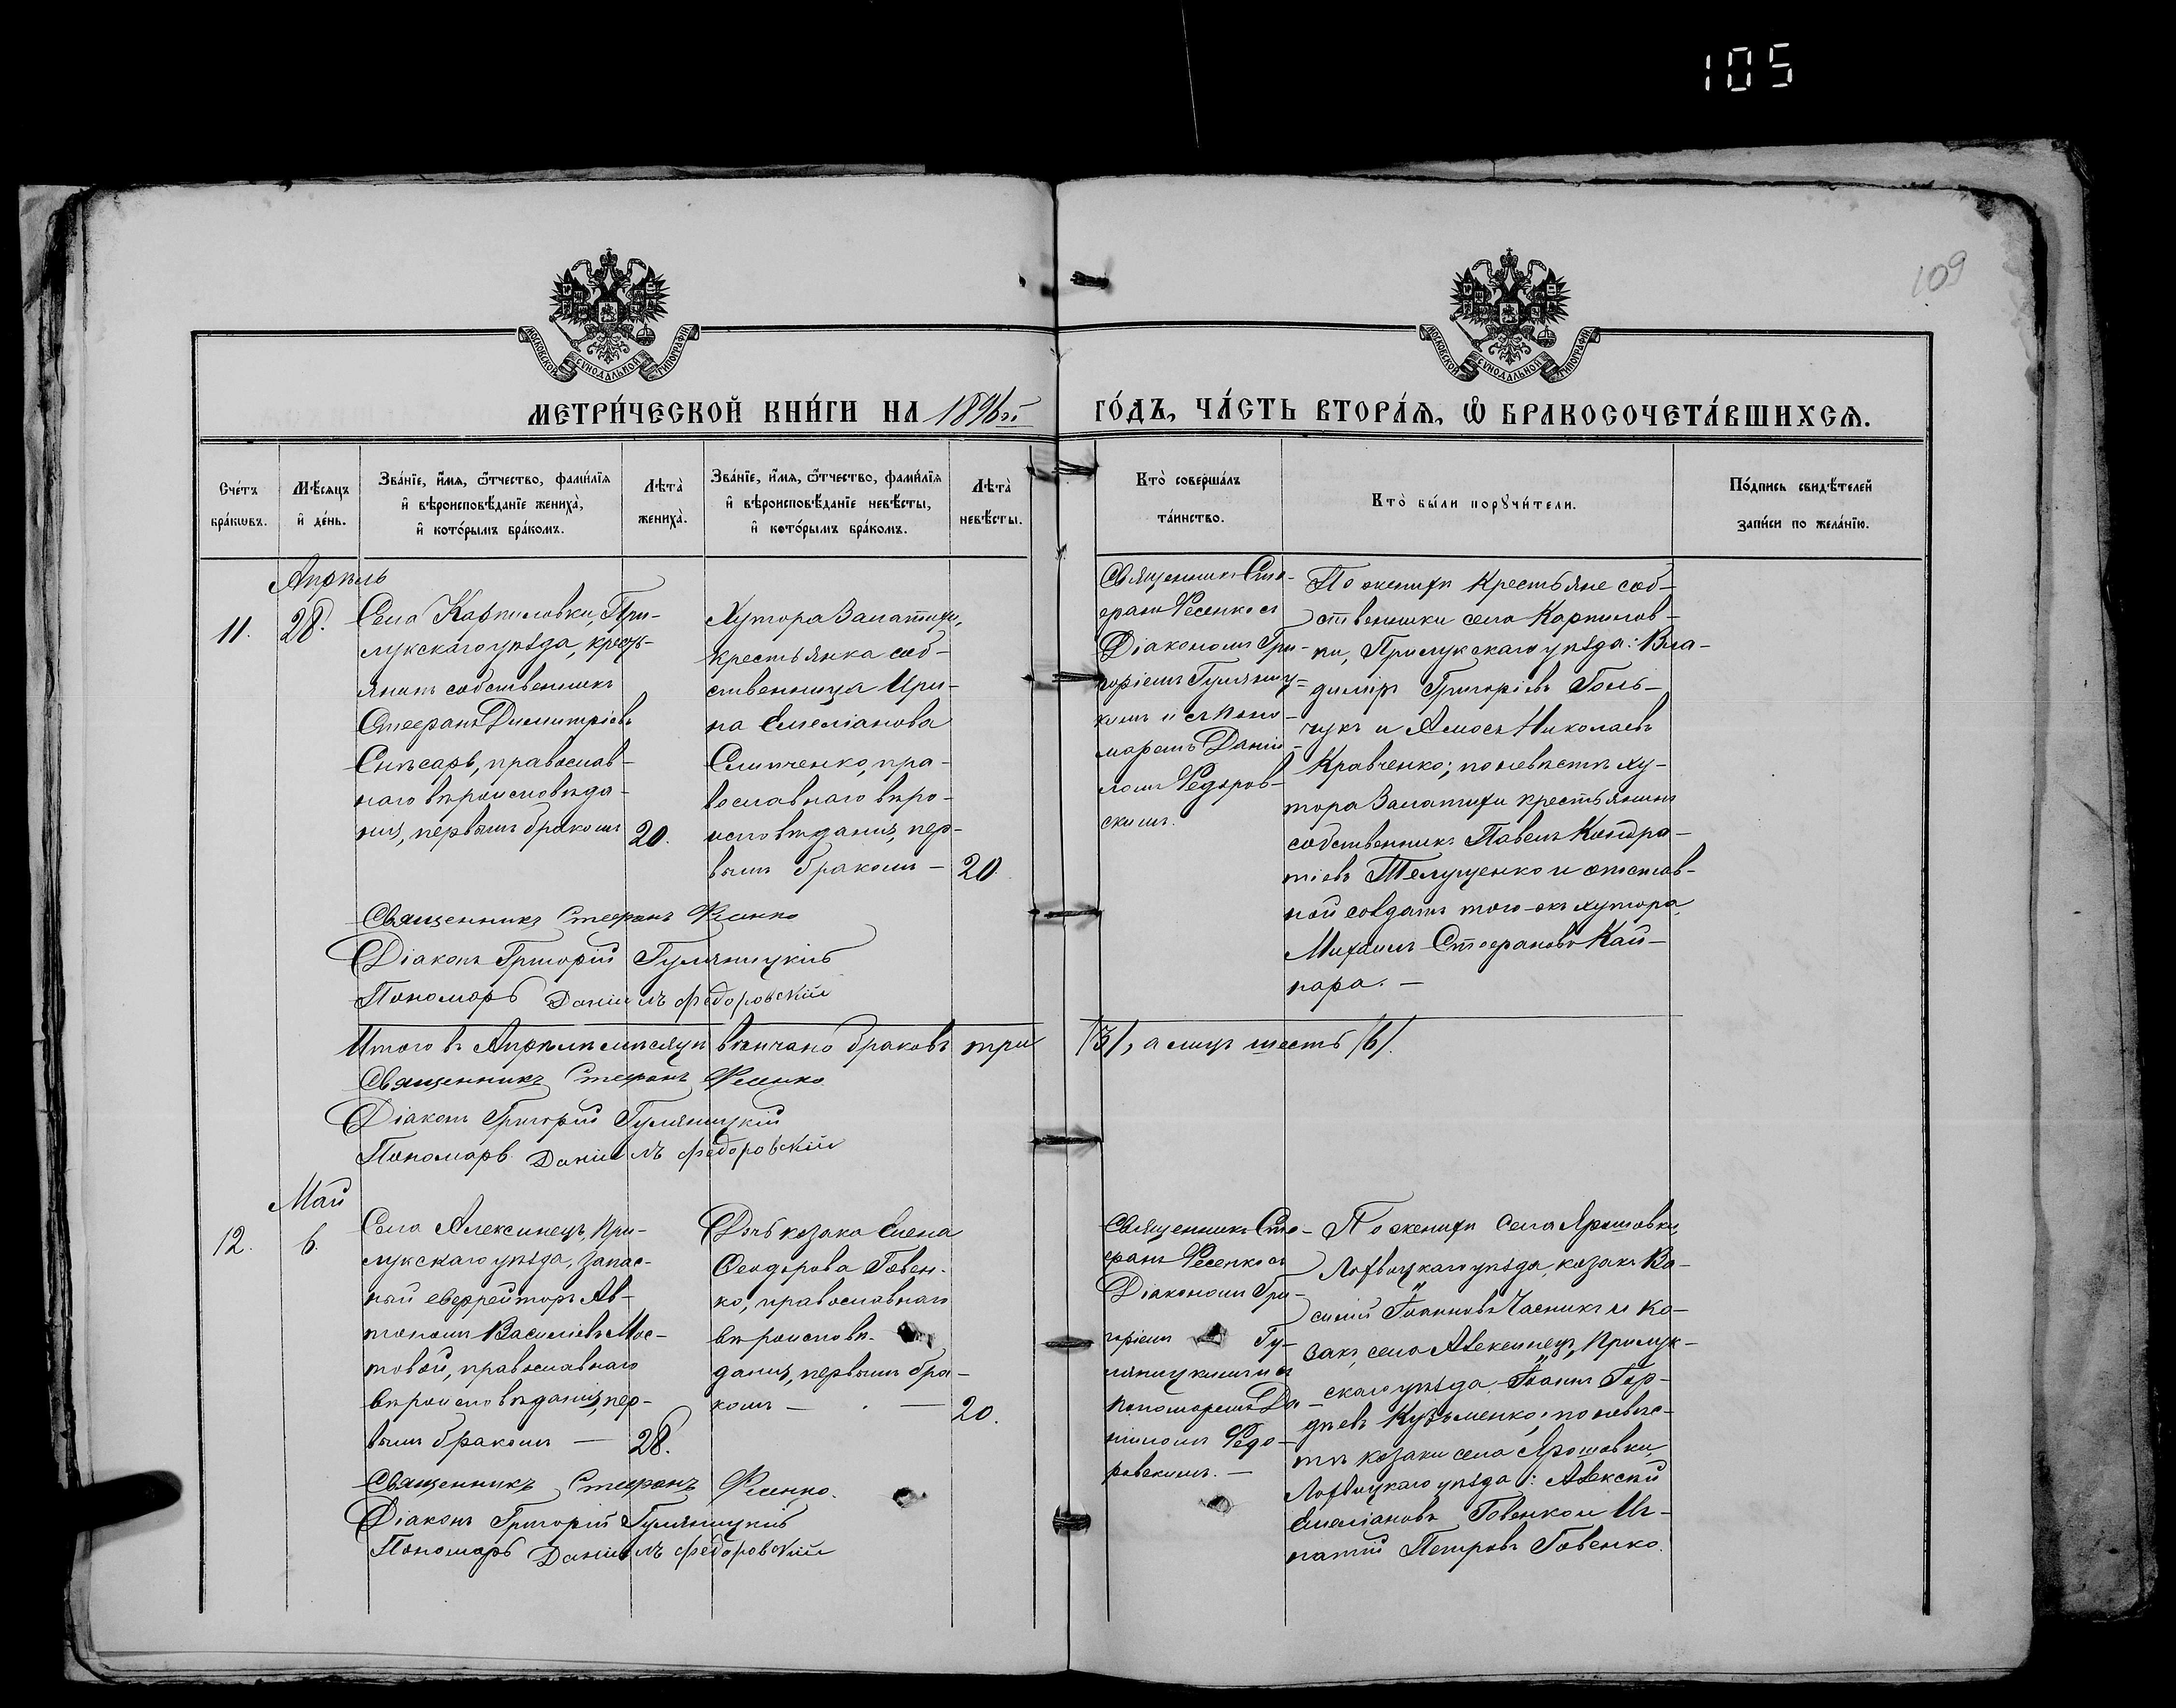 105
109
МОСКОВСКОЙ СѴНОДАЛЬНОЙ ТИПОГРАФІИ
МОСКОВСКОЙ СѴНОДАЛЬНОЙ ТИПОГРАФІИ
МЕТРИ́ЧЕСКОЙ КНИ́ГИ НА 1896ой ГО́ДЪ, ЧА́СТЬ ВТОРА́Ѧ, Ѽ БРАКОСОЧЕТА́ВШИХСѦ.
Сче́тъ бра́кѡвъ.
Мѣ́сяцъ и҆ де́нь.
Зва́нїе, и҆́мѧ, ѻ҆́тчество, фами́лїѧ
и҆ вѣроисповѣ́данїе жениха̀,
и҆ кото́рымъ бра́комъ.
Лѣта̀ жениха̀.
Зва́нїе, и҆́мѧ, ѻ҆́тчество, фами́лїѧ
и҆ вѣроисповѣ́данїе невѣ́сты,
и҆ кото́рымъ бра́комъ.
Лѣта̀ невѣ́сты.
Кто̀ соверша́лъ
та́инство.
Кто̀ бы́ли порꙋчи́тели.
По́дпись свидѣ́телей
за́писи по жела́нїю.
Апрѣль
11.
28.
Села Карпиловки, При-
лукскаго уѣзда, кресть-
янинъ собственникъ
Стефанъ Димитріевъ
Снѣсарь, православ-
наго вѣроисповѣда-
нія, первымъ бракомъ
20.
Хутора Запатихи,
крестьянка соб-
ственница Ири-
на Емеліанова
Слипченко, пра-
вославнаго вѣро-
исповѣданія, пер-
вымъ бракомъ –
20
Священникъ Сте-
фанъ Фесенко съ
Діакономъ Гри-
горіемъ Гуляницу-
кимъ и съ Поно-
маремъ Даніи-
ломъ Федоров-
скимъ.
По женихѣ крестьяне соб-
ственники села Карпилов-
ки, Прилукскаго уѣзда: Вла-
диміръ Григоріевъ Голь-
чукъ и Амосъ Николаевъ
Кравченко; по невѣстѣ ху-
тора крестьянинъ
собственникъ Павелъ Кондра-
тіевъ Телущенко и отстав-
ной солдатъ того-жъ хутора
Михаилъ Стефановъ Кай-
пара. –
Священникъ Стефанъ Фесенко
Діаконъ Григорій Гуляницкій
Пономарь Даніилъ Федоровскій
Итого въ Апрѣлѣ мѣсяцѣ вѣнчано браковъ три /3/, а лицъ шесть /6/.
Священникъ Стефанъ Фесенко
Діаконъ Григорій Гуляницкій
Пономарь Даніилъ Федоровскій
Май
12.
6.
Села Алексинецъ, При-
лукскаго уѣзда, запас-
ный ефрейторъ Ав-
тономъ Василіевъ Мос-
товой, православнаго
вѣроисповѣданія, пер-
вымъ бракомъ –
28.
Дочь козака Елена
Феодорова Говен-
ко, православнаго
вѣроисповѣ-
данія, первымъ бра-
комъ –
20.
Священникъ Сте-
фанъ Фесенко съ
Діакономъ Гри-
горіемъ Гу-
ляницкимъ и съ
Пономаремъ Да-
ніиломъ Федо-
ровскимъ. –
По женихѣ села Ярошовки,
Лохвицкаго уѣзда, козакъ Ва-
силій Іоанновъ Часникъ и ко-
закъ села Алексинецъ, Прилук-
скаго уѣзда Іоаннъ Гор-
дѣевъ Кузьменко; по невѣс-
тѣ козаки села Ярошовки,
Лохвицкаго уѣзда: Алексій
Емеліановъ Говенко и Иг-
натій Петровъ Говенко.
Священникъ Стефанъ Фесенко.
Діаконъ Григорій Гуляницкій
Пономарь Даніилъ Федоровскій